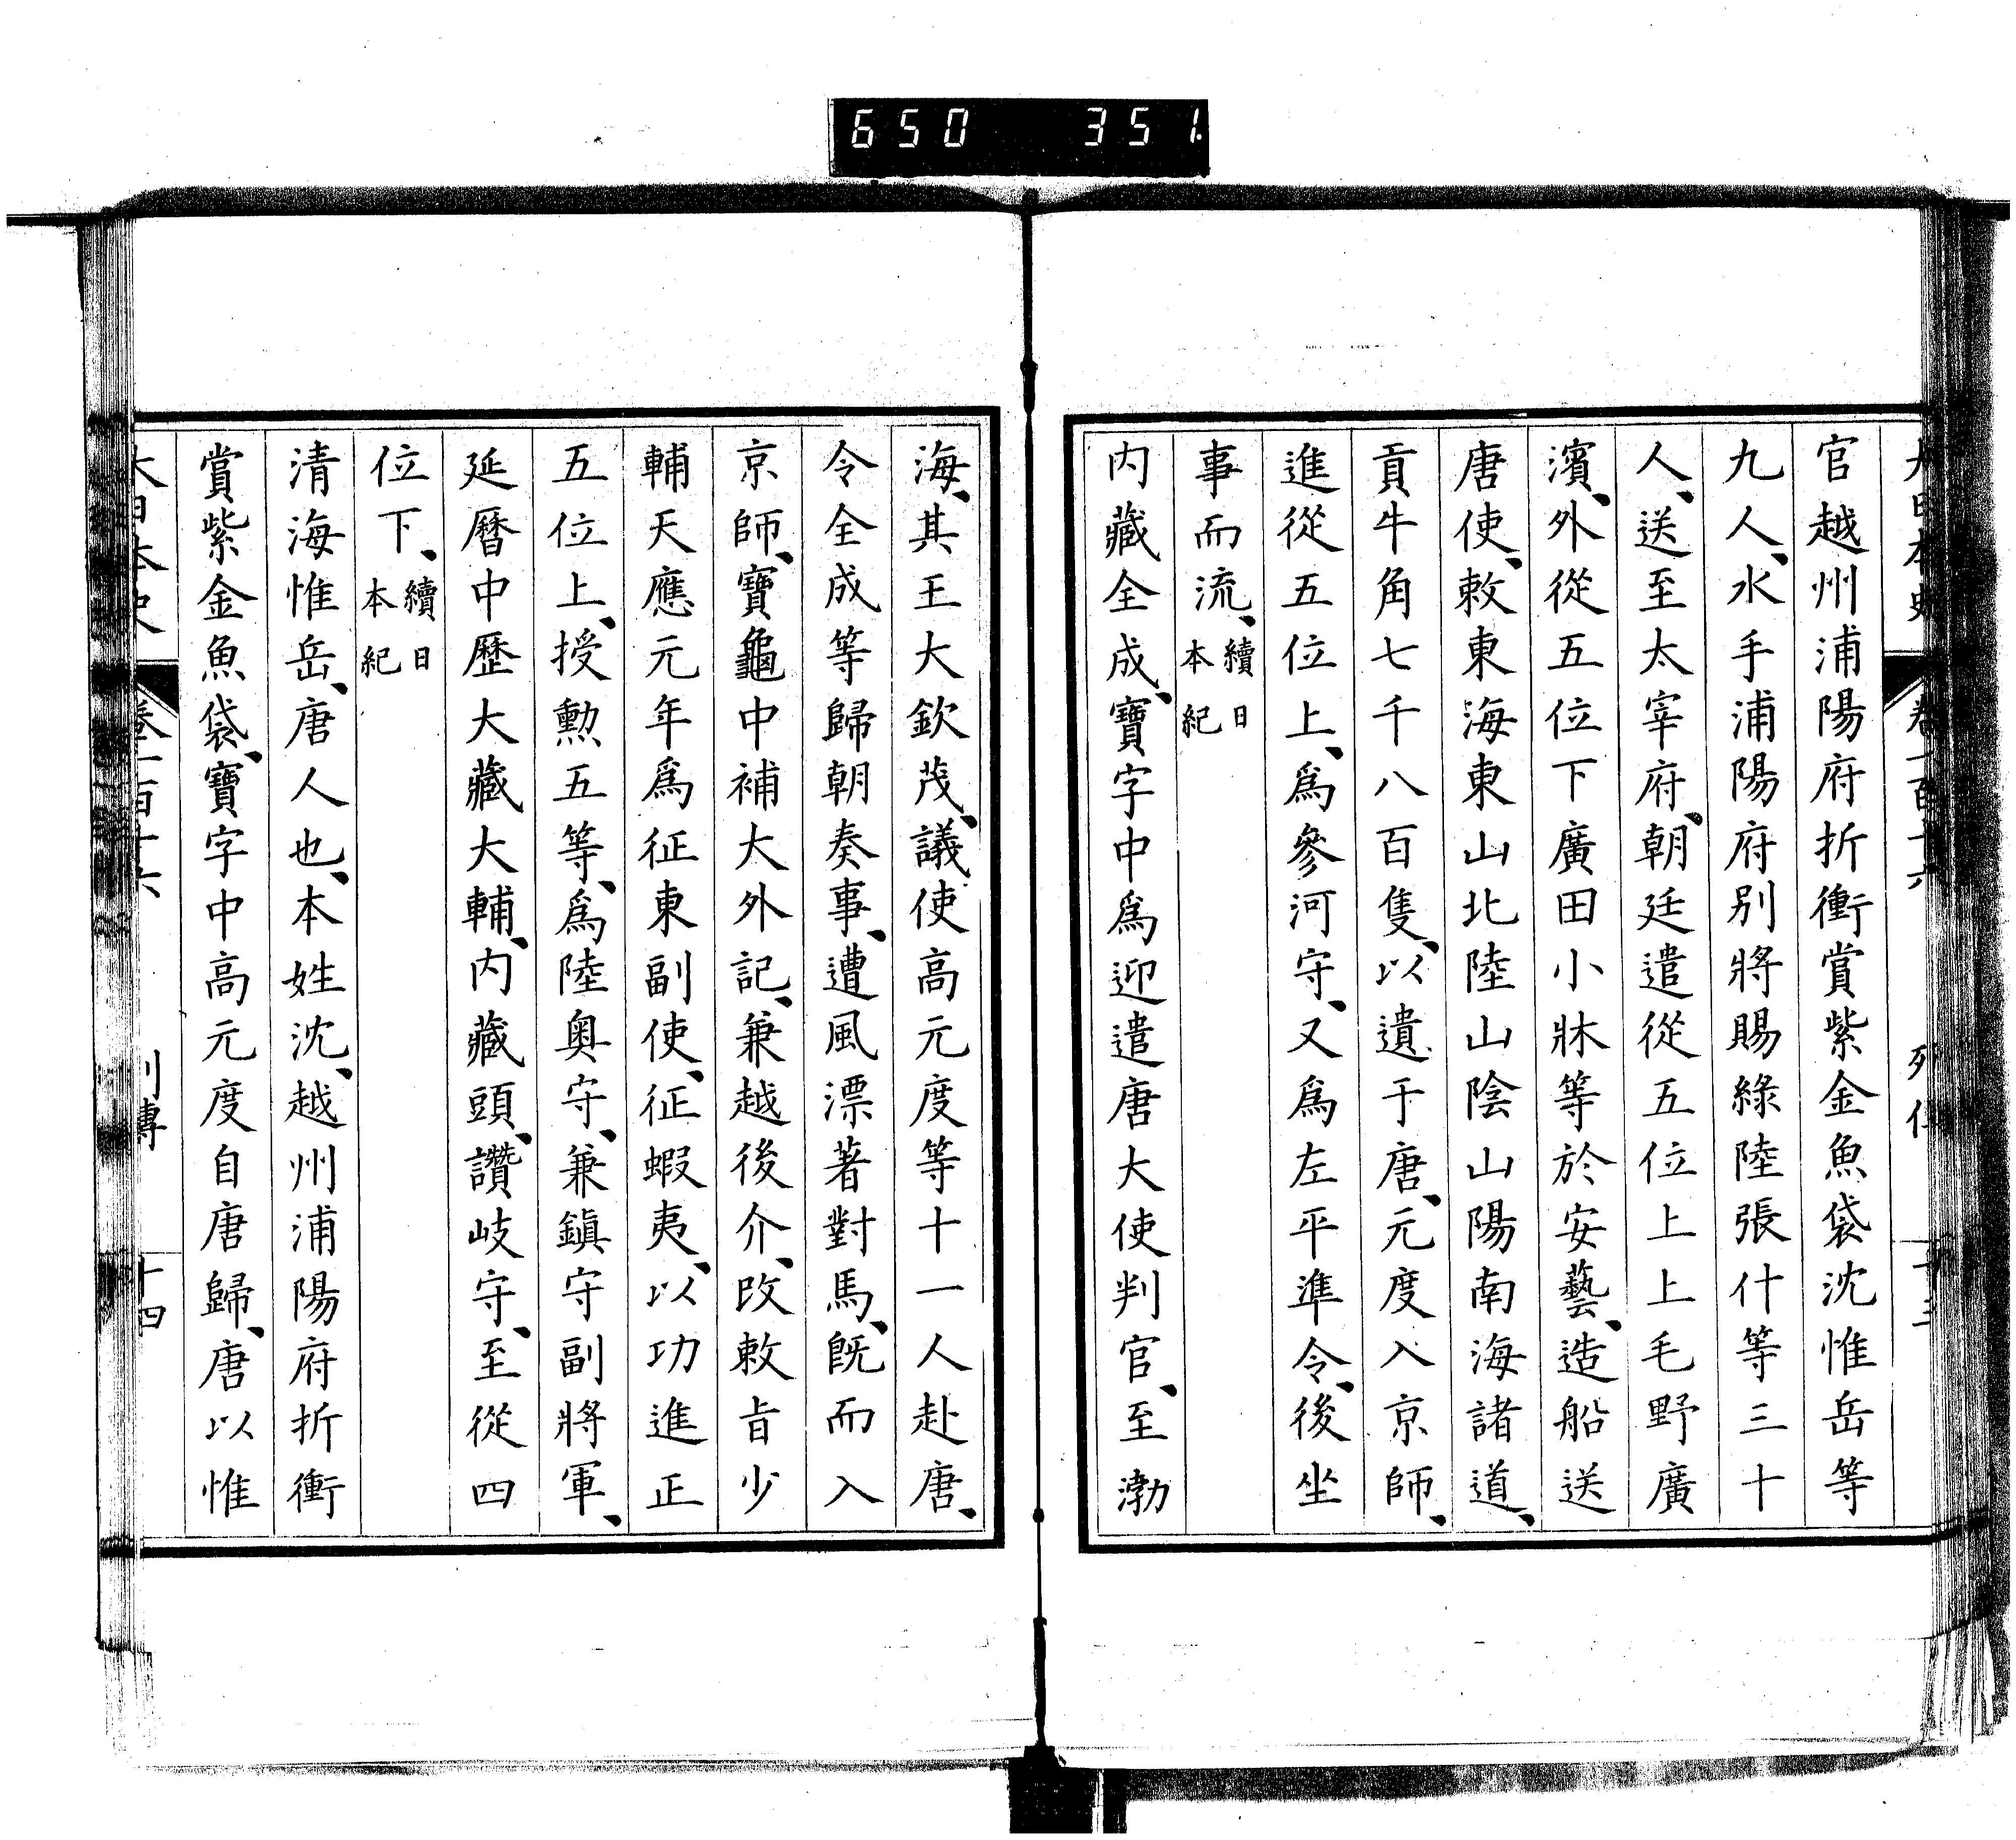 650 351
官越州浦陽府折衝賞紫金魚袋沈惟岳等
九人、水手浦陽府別將賜綠陸張什等三十
人、送至太宰府、朝廷遣從五位上上毛野廣
濱、外從五位下廣田小牀等於安藝、造船送
唐使、敕東海東山北陸山陰山陽南海諸道、
貢牛角七千八百隻、以遺于唐、元度入京師、
進從五位上、爲參河守、又爲左平準令、後坐
事而流、續日本紀
内藏全成、寶字中爲迎遣唐大使判官、至渤
海、其王大欽茂、議使高元度等十一人赴唐、
令全成等歸朝奏事、遭風漂著對馬、旣而入
京師、寶龜中補大外記、兼越後介、改敕旨少
輔天應元年爲征東副使、征蝦夷、以功進正
五位上、授勳五等、爲陸奥守、兼鎭守副將軍、
延曆中歷大藏大輔、内藏頭、讚岐守、至從四
位下、續日本紀
清海惟岳、唐人也、本姓沈、越州浦陽府折衝
賞紫金魚袋、寶字中高元度自唐歸、唐以惟